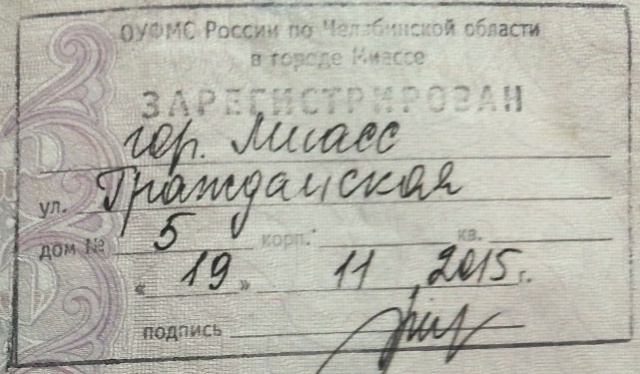 ОУФМС России по Челябинской области
в городе Миассе
ЗАРЕГИСТРИРОВАН
гор. Миасс
ул. Гражданская
дом № 5 корп. кв.
« 19 » 11 2015г.
подпись